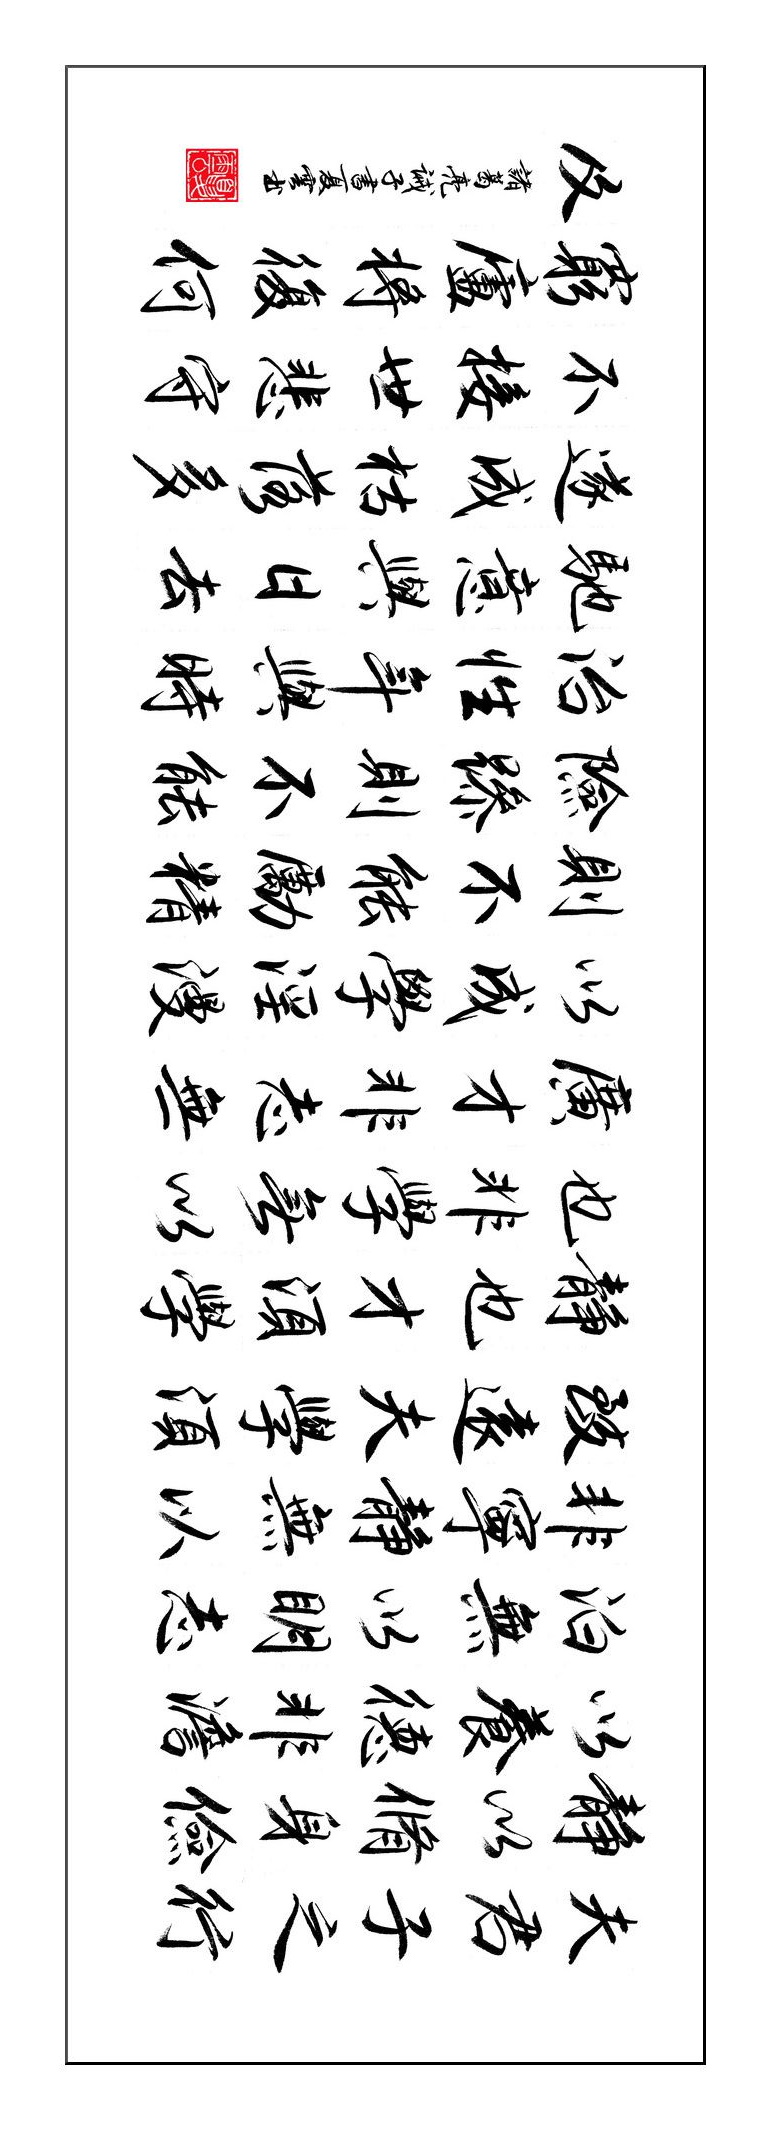 夫君子之行
靜以脩身儉
以養德非澹
泊無以明志
非寧靜無以
致遠夫學須
靜也才須學
也非學無以
廣才非志無
以成學淫慢
則不能勵精
險躁則不能
治性年與時
馳意與日去
遂成枯落多
不接世悲守
窮廬將復何
及
諸葛亮誡子書夏雲書